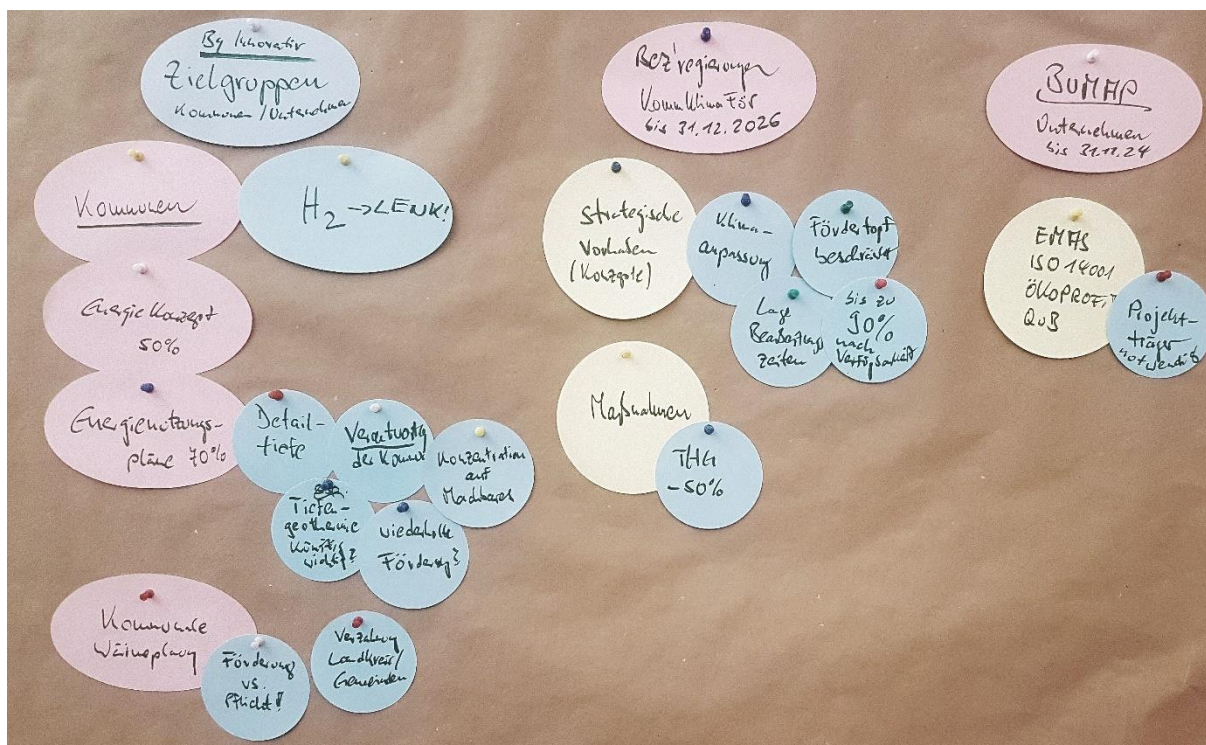 By Innovativ
Zielgruppen
Kommunen/Unternehmen
Kommunen
H2 → LENK!
Energiekonzept
50%
Energienutzungs-
pläne 70%
Detail-
tiefe
Verantwortg
der Kommune
Konzentration
auf
Machbares
Tiefen-
geothermie
künftig
wichtig?
wiederholte
Förderung?
Kommunale
Wärmeplanung
Förderung
vs.
Pflicht!
Verzahnung
Landkreis/
Gemeinden
Bez'regierungen
KommKlimaFör
bis 31.12.2026
Strategische
Vorhaben
(Konzepte)
Klima-
anpassung
Fördertopf
beschränkt
Lange
Bearbeitungs
zeiten
bis zu
90%
nach
Verfügbarkeit
Maßnahmen
THG
-50%
BUMAP
Unternehmen
EMAS
ISO 14001
ÖKOPROFIT
QuB
Projekt-
träger
notwendig